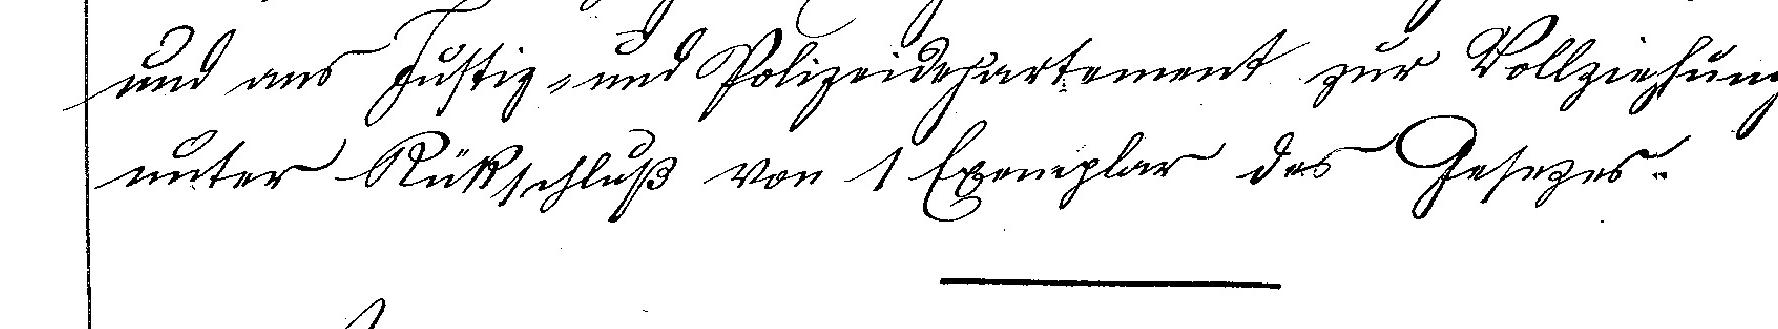 und ans Justiz- und Polizeidepartement zur Vollziehung
unter Rükschluß von 1 Exemplar des Gesezes.